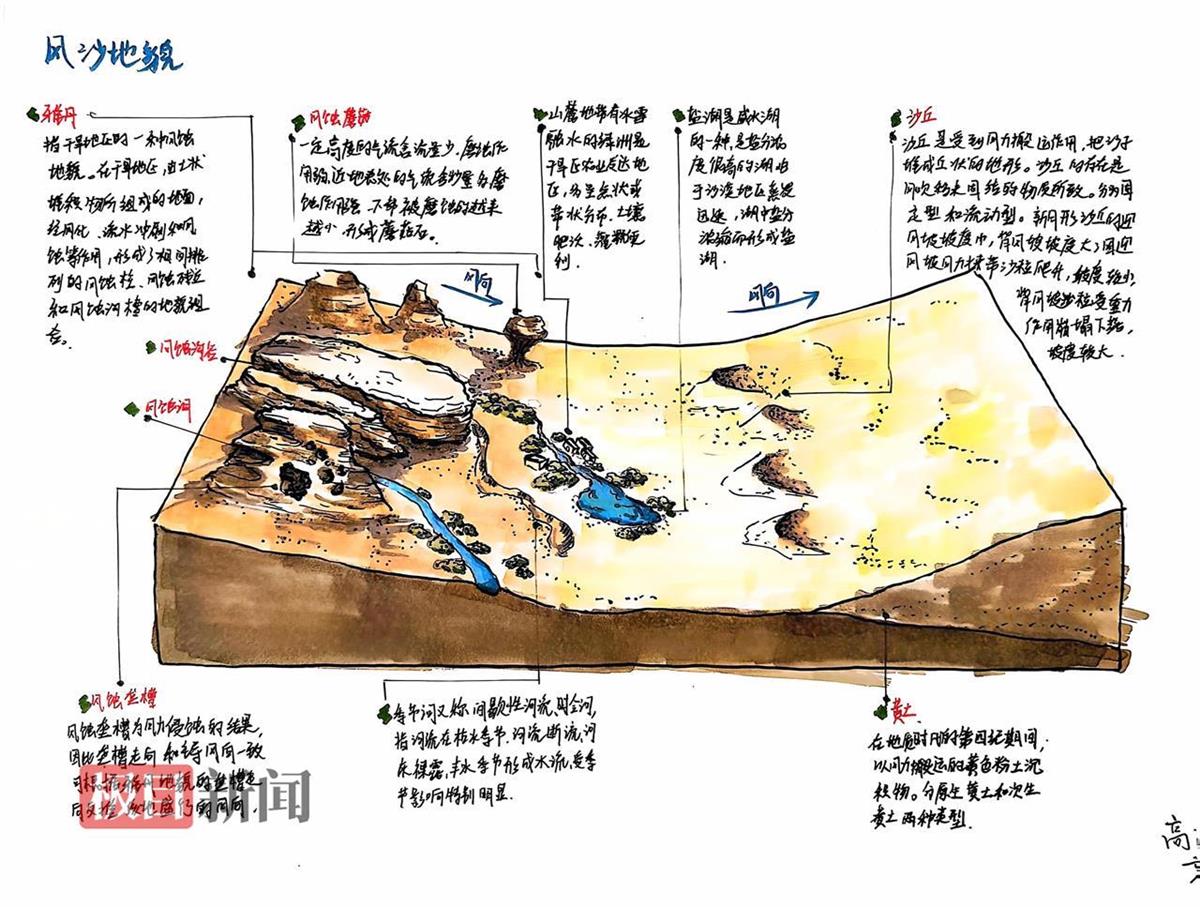 风沙地貌
雅丹
指干旱地区的一种风蚀
地貌。在干旱地区，由土状
堆积物所组成的地面，
经风化、流水冲刷和风
蚀等作用，形成了相间排
列的风蚀柱、风蚀残丘
和风蚀沟槽的地貌组
合。
风蚀蘑菇
一定高度的气流含沙量少，磨蚀作
用弱，近地表处的气流含沙量多磨
蚀作用强，下部被磨蚀的越来
越小，形成蘑菇石。
山麓地带有冰雪
融水的绿洲是
干旱区农业发达地
区，多呈点状或
带状分布，土壤
肥沃、灌溉便
利．
盐湖是咸水湖
的一种，是盐分浓
度很高的湖。由
于沙漠地区蒸发
迅速，湖中盐分
浓缩而形成盐
湖．
沙丘
沙丘是受到风力搬运作用，把沙子
堆成丘状的地形。沙丘的存在是
风吹移未固结的物质所致。分为固
定型和流动型。新月形沙丘的迎
风坡坡度小，背风坡坡度大，因迎
风坡风力携带沙粒爬升，坡度较小，
背风坡沙粒受重力
作用崩塌下落，
坡度较大．
风向
风向
风蚀洞谷
风蚀洞
风蚀垄槽
风蚀垄槽为风力侵蚀的结果，
因此垄槽走向和主导风向一致
可根据雅丹地貌的垄槽走
向
极目新闻
季节河又称间歇性河流、时令河，
指河流在枯水季节，河流断流，河
床裸露，丰水季节形成水流，受季
节影响特别明显．
黄土
在地质时代的第四纪期间，
以风力搬运的黄色粉土沉
积物。分原生黄土和次生
黄土两种类型．
高